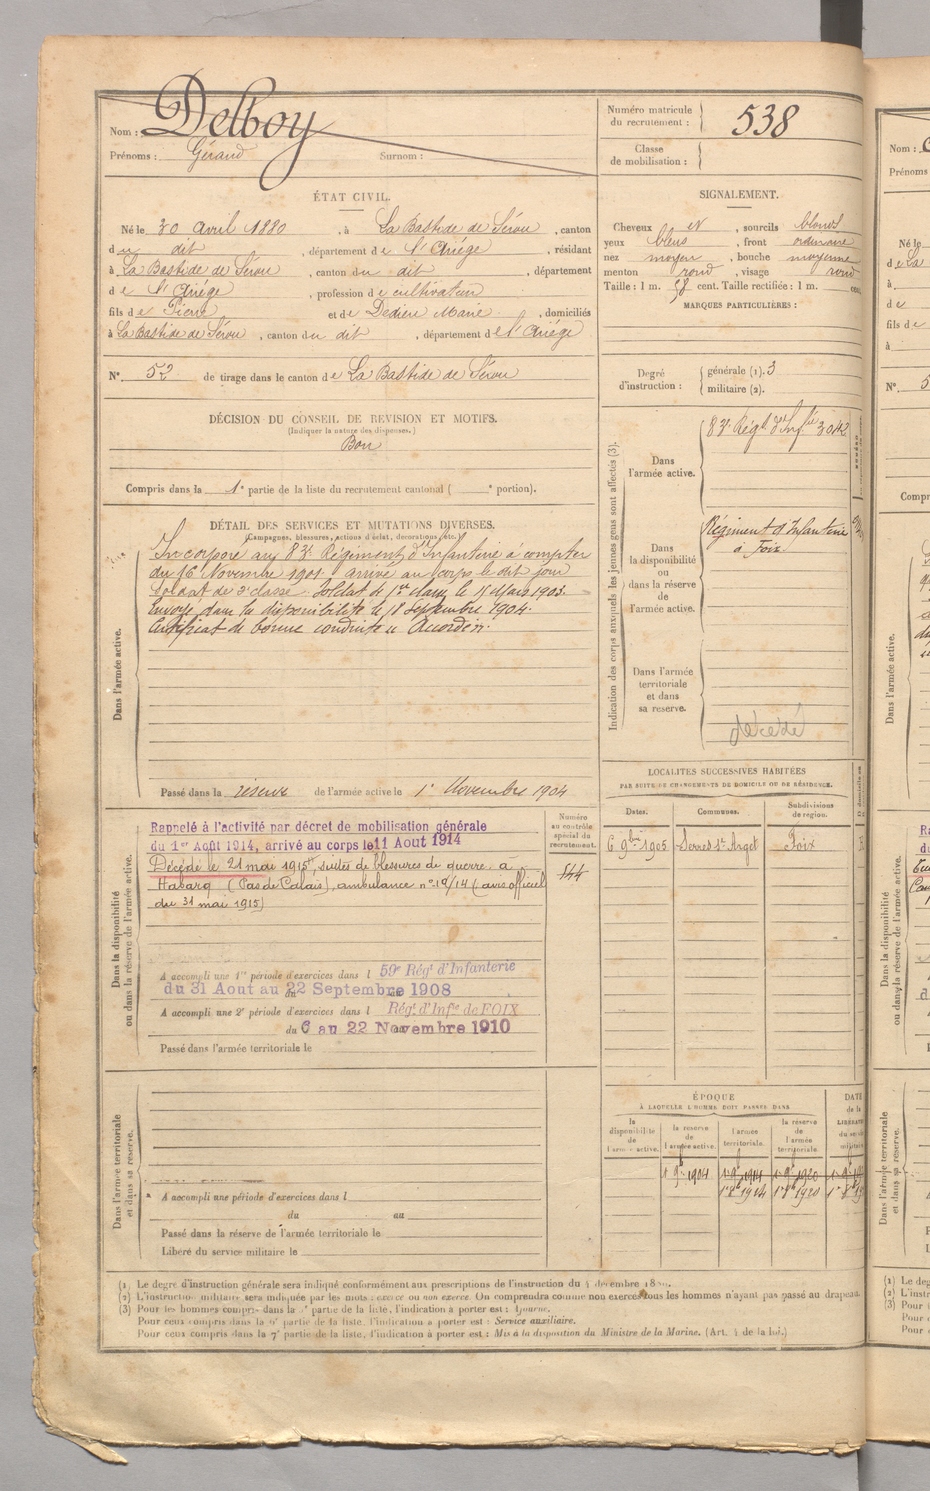 Nom : Delboy
Prénoms : Gérand Surnom :
Numéro matricule
du recrutement : 538
Classe
de mobilisation :
ÉTAT CIVIL.
Né le 30 avril 1880, à La Bastide de Sérou, canton
du dit, département de l'Ariége, résidant
à La Bastide de Sérou, canton du dit, département
de l'Ariége, profession de cultivateur
fils de Pierre et de Dedieu Marie, domiciliés
à La Bastide de Sérou, canton du dit, département de l'Ariége
N° 52 de tirage dans le canton de La Bastide de Sérou
SIGNALEMENT.
Cheveux et, sourcils blonds
yeux bleus, front ordinaire
nez moyen, bouche moyenne
menton rond, visage rond
Taille : 1 m. 58 cent. Taille rectifiée : 1 m. cent.
MARQUES PARTICULIÈRES :
Degré
d'instruction :
générale (1). 3
militaire (2).
DÉCISION DU CONSEIL DE REVISION ET MOTIFS.
(Indiquer la nature des dispenses.)
Bon
Compris dans la 1e partie de la liste du recrutement cantonal ( e portion).
DÉTAIL DES SERVICES ET MUTATIONS DIVERSES.
(Campagnes, blessures, actions d'éclat, décorations, etc.)
Dans l'armée active.
Incorporé au 83e Régiment d'Infanterie à compter
du 16 Novembre 1901 arrivé au corps le dit jour
Soldat de 2e classe. Soldat de 1re classe le 11 Mars 1903.
Envoyé dans la disponibilité le 18 septembre 1904.
Certificat de bonne conduite "Accordé".
Passé dans la réserve de l'armée active le 1er Novembre 1904
Indication des corps auxquels les jeunes gens sont affectés (3).
Dans
l'armée active.
83e Régt d'Infie 3042
Dans
la disponibilité
ou
dans la réserve
de
l'armée active.
Régiment d'Infanterie
à Foix
Dans l'armée
territoriale
et dans
sa reserve.
décédé
Dans la disponibilité
ou dans la réserve de l'armée active.
Rappelé à l'activité par décret de mobilisation générale
du 1er Août 1914, arrivé au corps le 11 Aout 1914
Décédé le 21 mai 1915, suites de blessures de guerre à
Habarq (Pas de Calais), ambulance n° 10/14 (avis officiel
du 31 mai 1915)
Numéro
au contrôle
spécial du
recrutement.
544
A accompli une 1re période d'exercices dans l 59e Régt d'Infanterie
du 31 Aout au 22 Septembre 1908
A accompli une 2e période d'exercices dans l Régt d'Infie de FOIX
du 6 au 22 Novembre 1910
Passé dans l'armée territoriale le
LOCALITÉS SUCCESSIVES HABITÉES
PAR SUITE DE CHANGEMENTS DE DOMICILE OU DE RÉSIDENCE.
Dates. Communes. Subdivisions
de région.
6 9bre 1905 Serres s/ Arget Foix
Dans l'armée territoriale
et dans sa réserve.
A accompli une période d'exercices dans l
du au
Passé dans la réserve de l'armée territoriale le
Libéré du service militaire le
ÉPOQUE
À LAQUELLE L'HOMME DOIT PASSER DANS
la
disponibilité
de
l'armée active.
la réserve
de
l'armée active.
l'armée
territoriale.
la réserve
de
l'armée
territoriale.
DATE
de la
1 9b 1904 1 9b 1914 1 9b 1920
(1) Le degré d'instruction générale sera indiqué conformément aux prescriptions de l'instruction du 4 décembre
(2) L'instruction militaire sera indiquée par les mots : exercé ou non exercé. On comprendra comme non exercés tous les hommes n'ayant pas passé au drapeau.
(3) Pour les hommes compris dans la partie de la liste, l'indication à porter est : Ajourné.
Pour ceux compris dans la partie de la liste, l'indication à porter est : Service auxiliaire.
Pour ceux compris dans la 7e partie de la liste, l'indication à porter est : Mis à la disposition du Ministre de la Marine. (Art. 4 de la loi.)